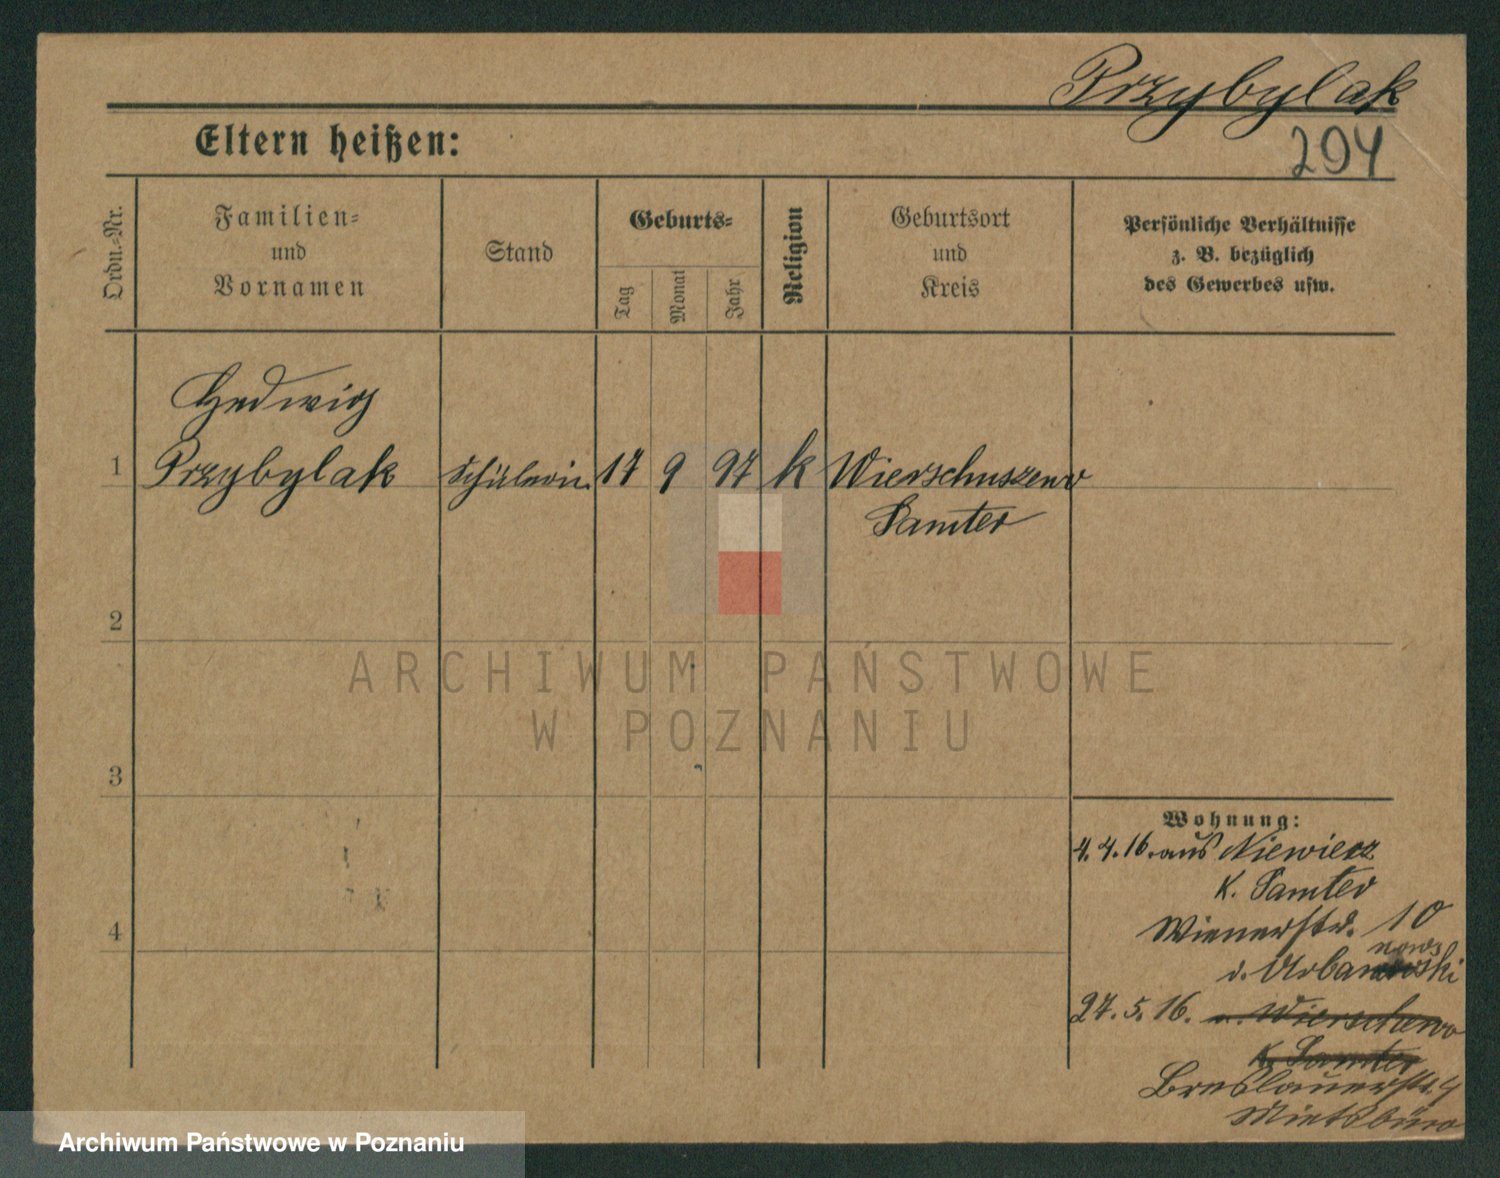 Przybylak
Eltern heißen:
294
Ordn.-Nr.
Familien-
und
Vornamen
Stand
Geburts-
Tag
Monat
Jahr
Religion
Geburtsort
und
Kreis
Persönliche Verhältnisse
z. B. bezüglich
des Gewerbes usw.
Hedwig
1 Przybylak Schülerin 17 9 97 k Wierschuszewo
Samter
2
ARCHIWUM PAŃSTWOWE
W POZNANIU
3
Wohnung:
4.4.16. aus Niewierz
K. Samter
4
Wienerstr. 10
nows
b. Urbanowski
27.5.16. n. Wierschewo
K. Samter
Breslauerstr. 4
Mietsbüro
Archiwum Państwowe w Poznaniu